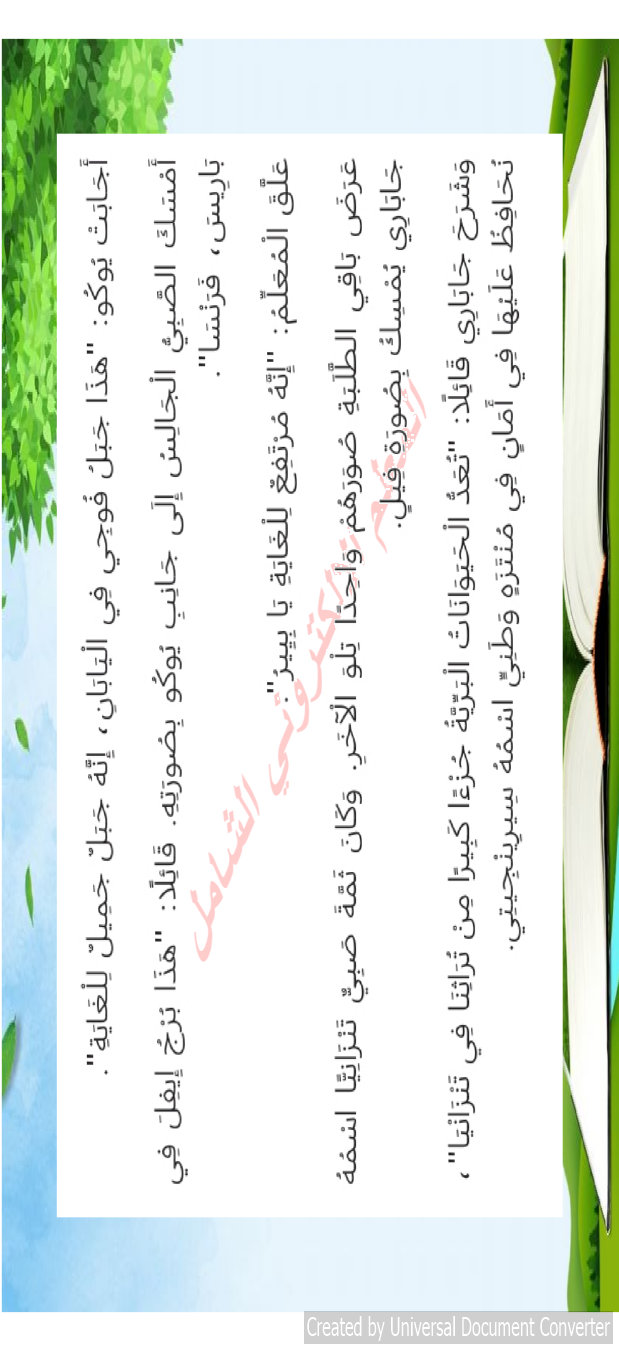 أَجَابَتْ يُوكُو: "هَذَا جَبَلُ فُوجِي فِي الْيَابَانِ، إِنَّهُ جَبَلٌ جَمِيلٌ لِلْغَايَةِ".
أَمْسَكَ الصَّبِيُّ الْجَالِسُ إِلَى جَانِبِ يُوكُو بِصُورَتِهِ. قَائِلًا: "هَذَا بُرْجُ إِيفِلَ فِي
بَارِيسَ، فَرَنْسَا".
عَلَّقَ الْمُعَلِّمُ: "إِنَّهُ مُرْتَفِعٌ لِلْغَايَةِ يَا بِيِيرُ".
عَرَضَ بَاقِي الطَّلَبَةِ صُوَرَهُمْ وَاحِدًا تِلْوَ الْآخَرِ. وَكَانَ ثَمَّةَ صَبِيٌّ تَنْزَانِيًّا اسْمُهُ
جَابَارِي يُمْسِكُ بِصُورَةِ فِيلٍ.
وَشَرَحَ جَابَارِي قَائِلًا: "تُعَدُّ الْحَيَوَانَاتُ الْبَرِّيَّةُ جُزْءًا كَبِيرًا مِنْ تُرَاثِنَا فِي تَنْزَانْيَا"،
نُحَافِظُ عَلَيْهَا فِي أَمَانٍ فِي مُنْتَزَهٍ وَطَنِيٍّ اسْمُهُ سِيرِينْجِيتِي.
التعلم الإلكتروني الشامل
Created by Universal Document Converter